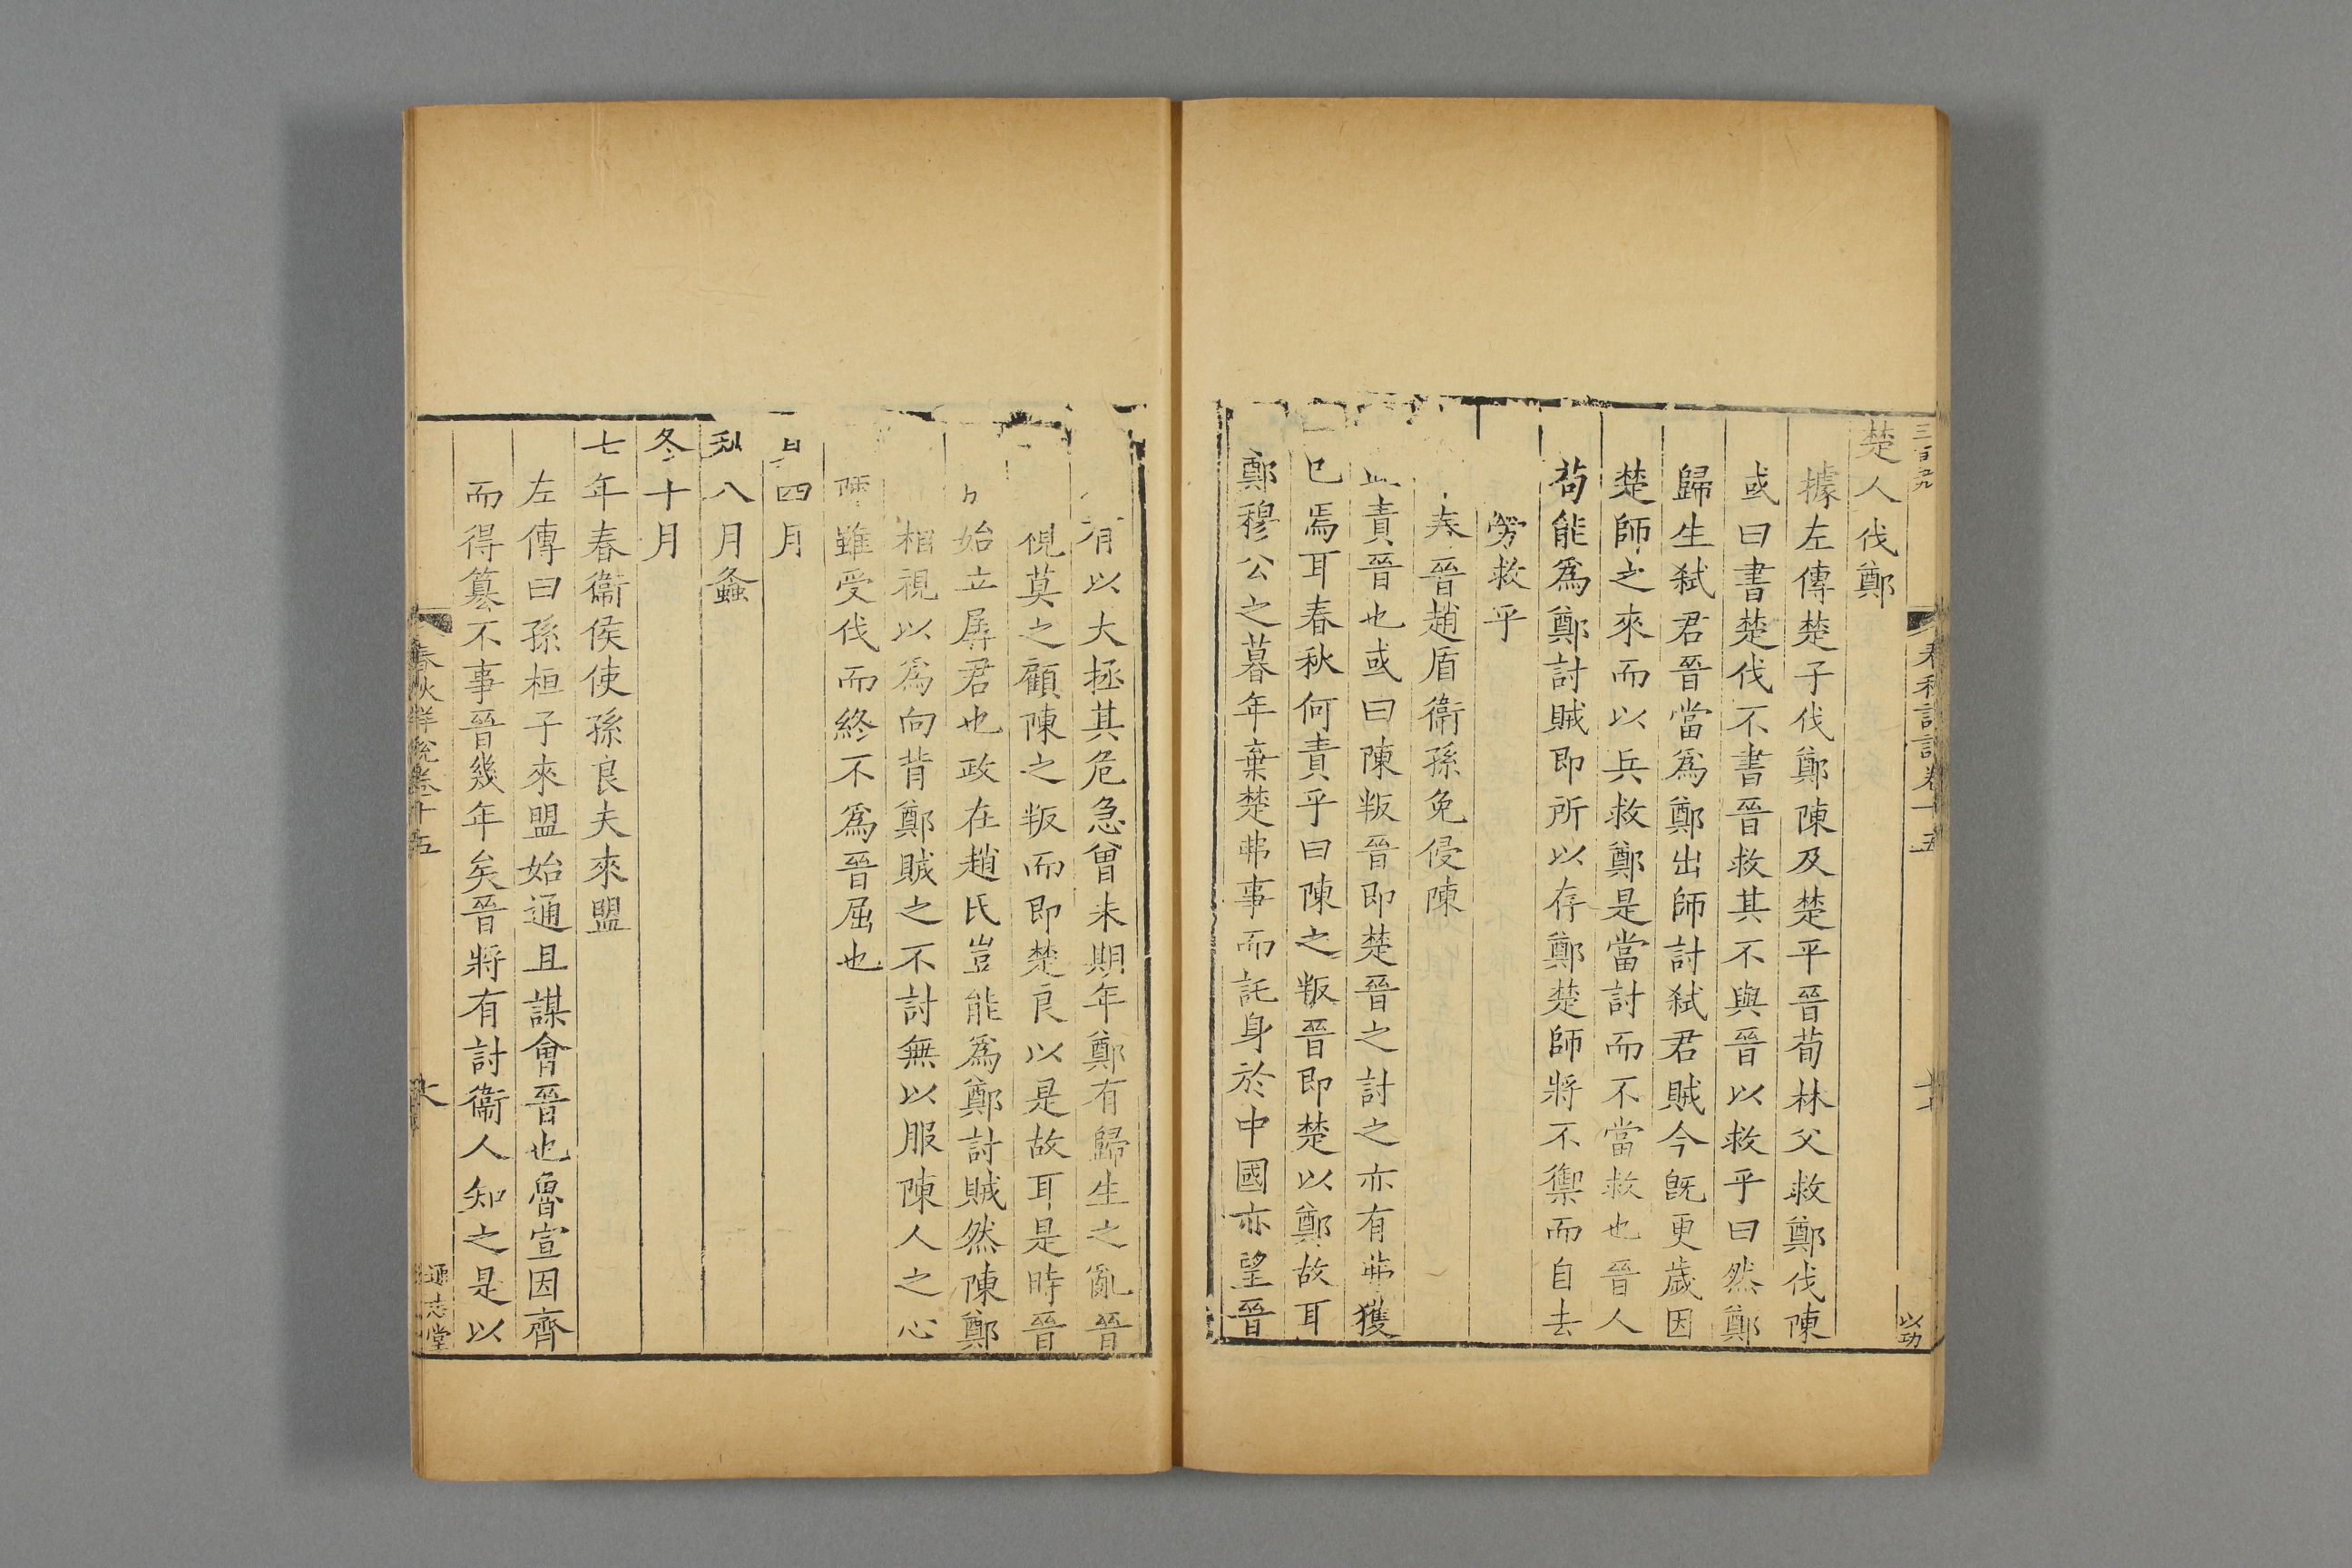 三百九九
春秋詳說卷十五
以功
楚人伐鄭
據左傳楚子伐鄭陳及楚平晉荀林父救鄭伐陳
或曰書楚伐不書晉救其不與晉以救乎曰然鄭
歸生弑君晉當爲鄭出師討弑君賊今旣更歲因
楚師之來而以兵救鄭是當討而不當救也晉人
苟能爲鄭討賊即所以存鄭楚師將不禦而自去
勞救乎
春晉趙盾衛孫免侵陳
責晉也或曰陳叛晉即楚晉之討之亦有弗獲
已焉耳春秋何責乎曰陳之叛晉即楚以鄭故耳
鄭穆公之暮年棄楚弗事而託身於中國亦望晉
有以大拯其危急曾未期年鄭有歸生之亂晉
視莫之顧陳之叛而即楚良以是故耳是時晉
始立孱君也政在趙氏豈能爲鄭討賊然陳鄭
相視以爲向背鄭賊之不討無以服陳人之心
陳雖受伐而終不爲晉屈也
四月
秋八月螽
冬十月
七年春衞侯使孫良夫來盟
左傳曰孫桓子來盟始通且謀會晉也魯宣因齊
而得簒不事晉幾年矣晉將有討衞人知之是以
春秋詳說卷十五
通志堂